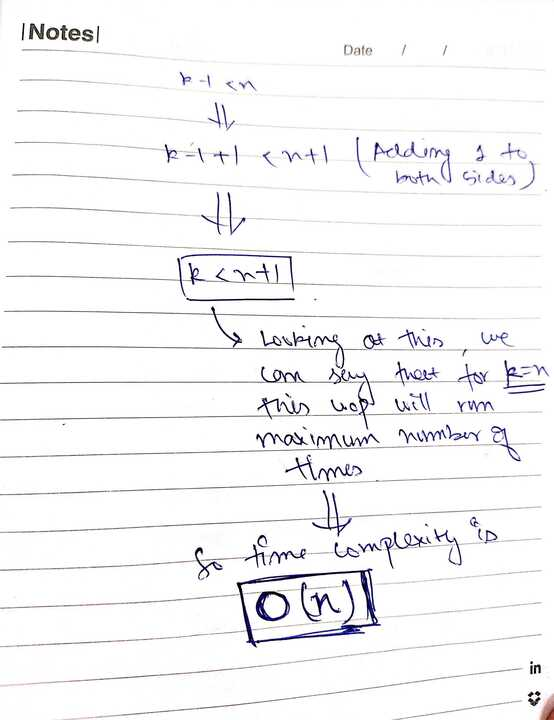 |Notes|
Date / /
k-1 < n
⇓
k-1+1 < n+1 (Adding 1 to
both sides)
⇓
k < n+1
↳ Looking at this, we
can say that for k=n
this loop will run
maximum number of
times
⇓
So time complexity is
O(n)
in